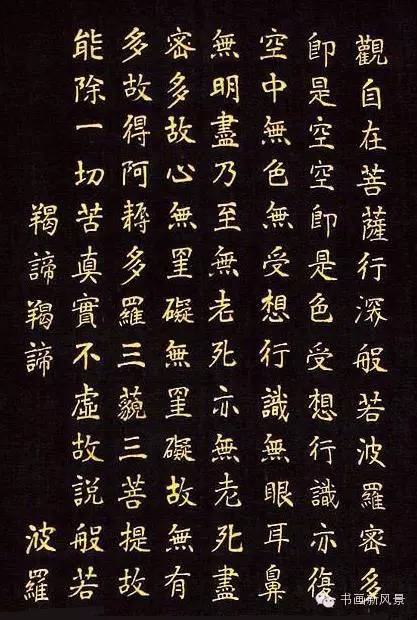 觀自在菩薩行深般若波羅密多
即是空空即是色受想行識亦復
空中無色無受想行識無眼耳鼻
無明盡乃至無老死亦無老死盡
密多故心無罣礙無罣礙故無有
多故得阿耨多羅三藐三菩提故
能除一切苦真實不虛故說般若
羯諦羯諦 波羅
书画新风景